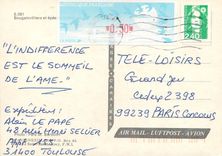 Bougainvilliers et Agde
0,50
2,40
"L'INDIFFERENCE
EST LE SOMMEIL
DE L'AME."
Expéditeur:
Alain LE PAPE
SELLIER
31400 TOULOUSE
TELE-LOISIRS
Cedex 2398
99239 PARIS CONCOURS
AIR MAIL - LUFTPOST - AVION